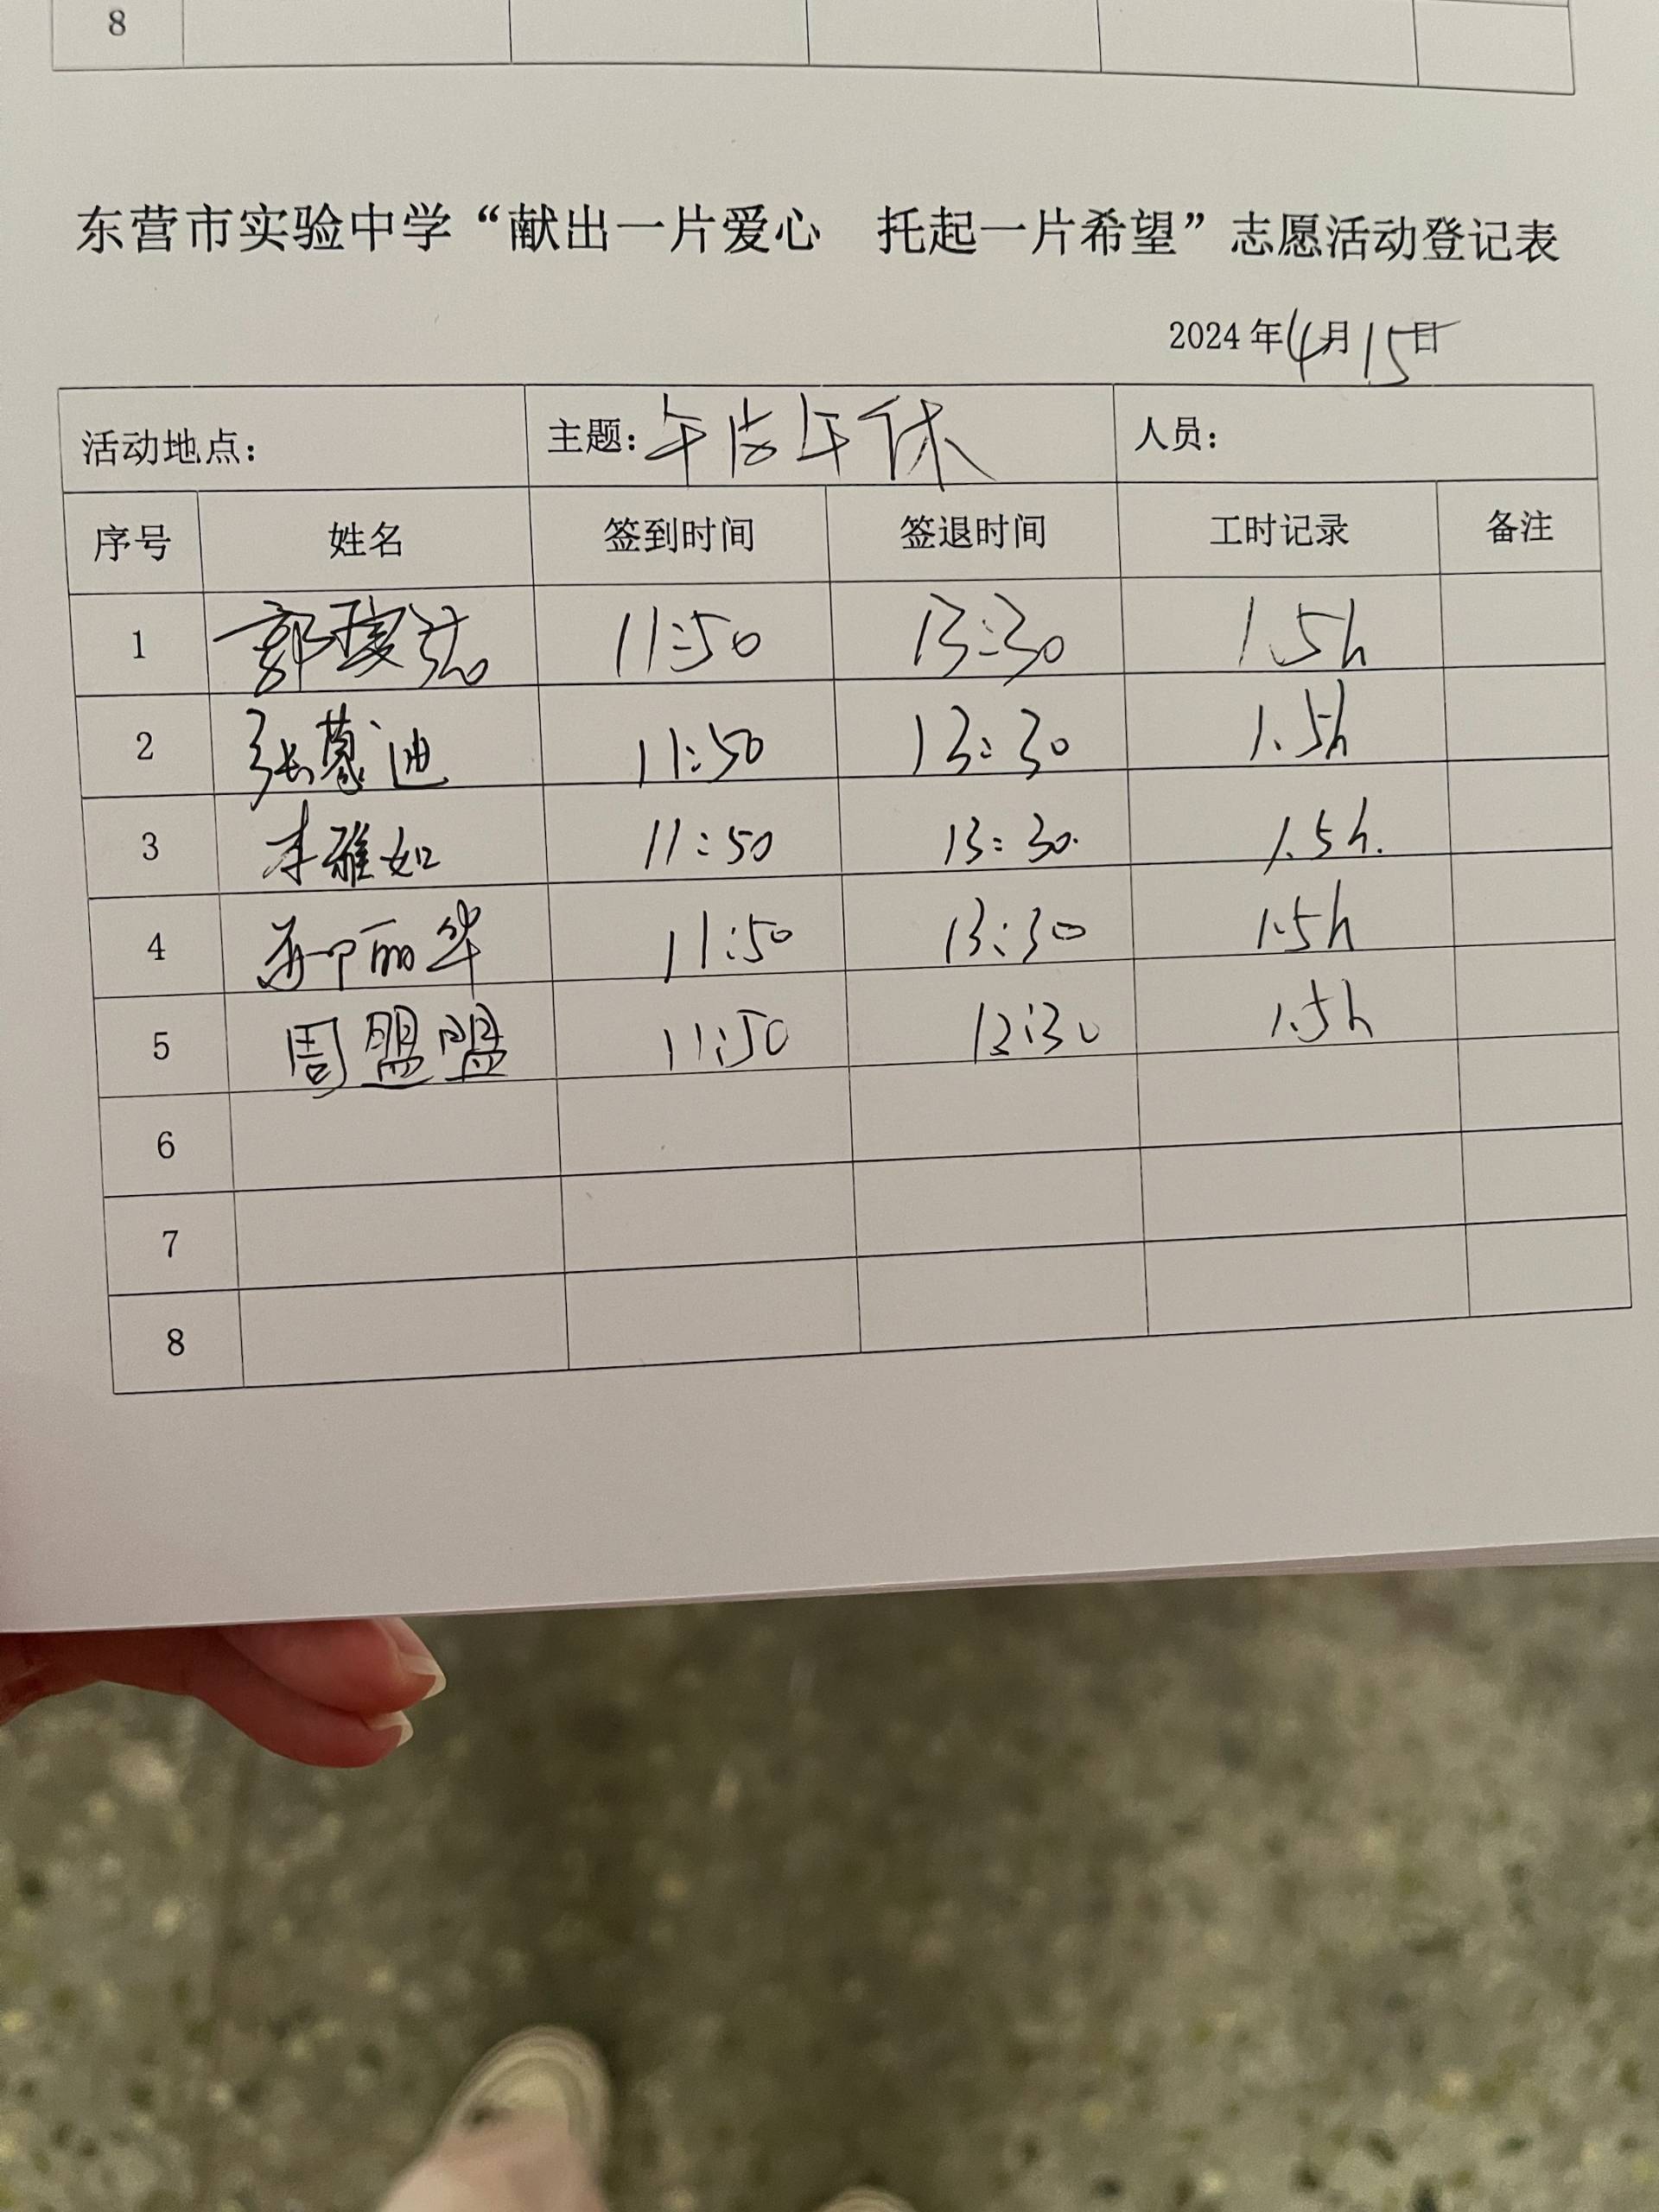 8
东营市实验中学“献出一片爱心 托起一片希望”志愿活动登记表
2024年4月15日
活动地点： 主题：午饭午休 人员：
序号 姓名 签到时间 签退时间 工时记录 备注
1 郭 11:50 13:30 1.5h
2 张慕迪 11:50 13:30 1.5h
3 雅如 11:50 13:30. 1.5h.
4 丽华 11:50 13:30 1.5h
5 周盟盟 11:50 13:30 1.5h
6
7
8